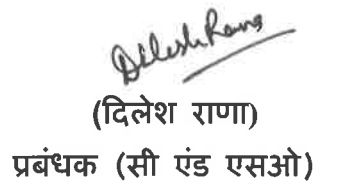 Dilesh Rana
(दिलेश राणा)
प्रबंधक (सी एंड एसओ)